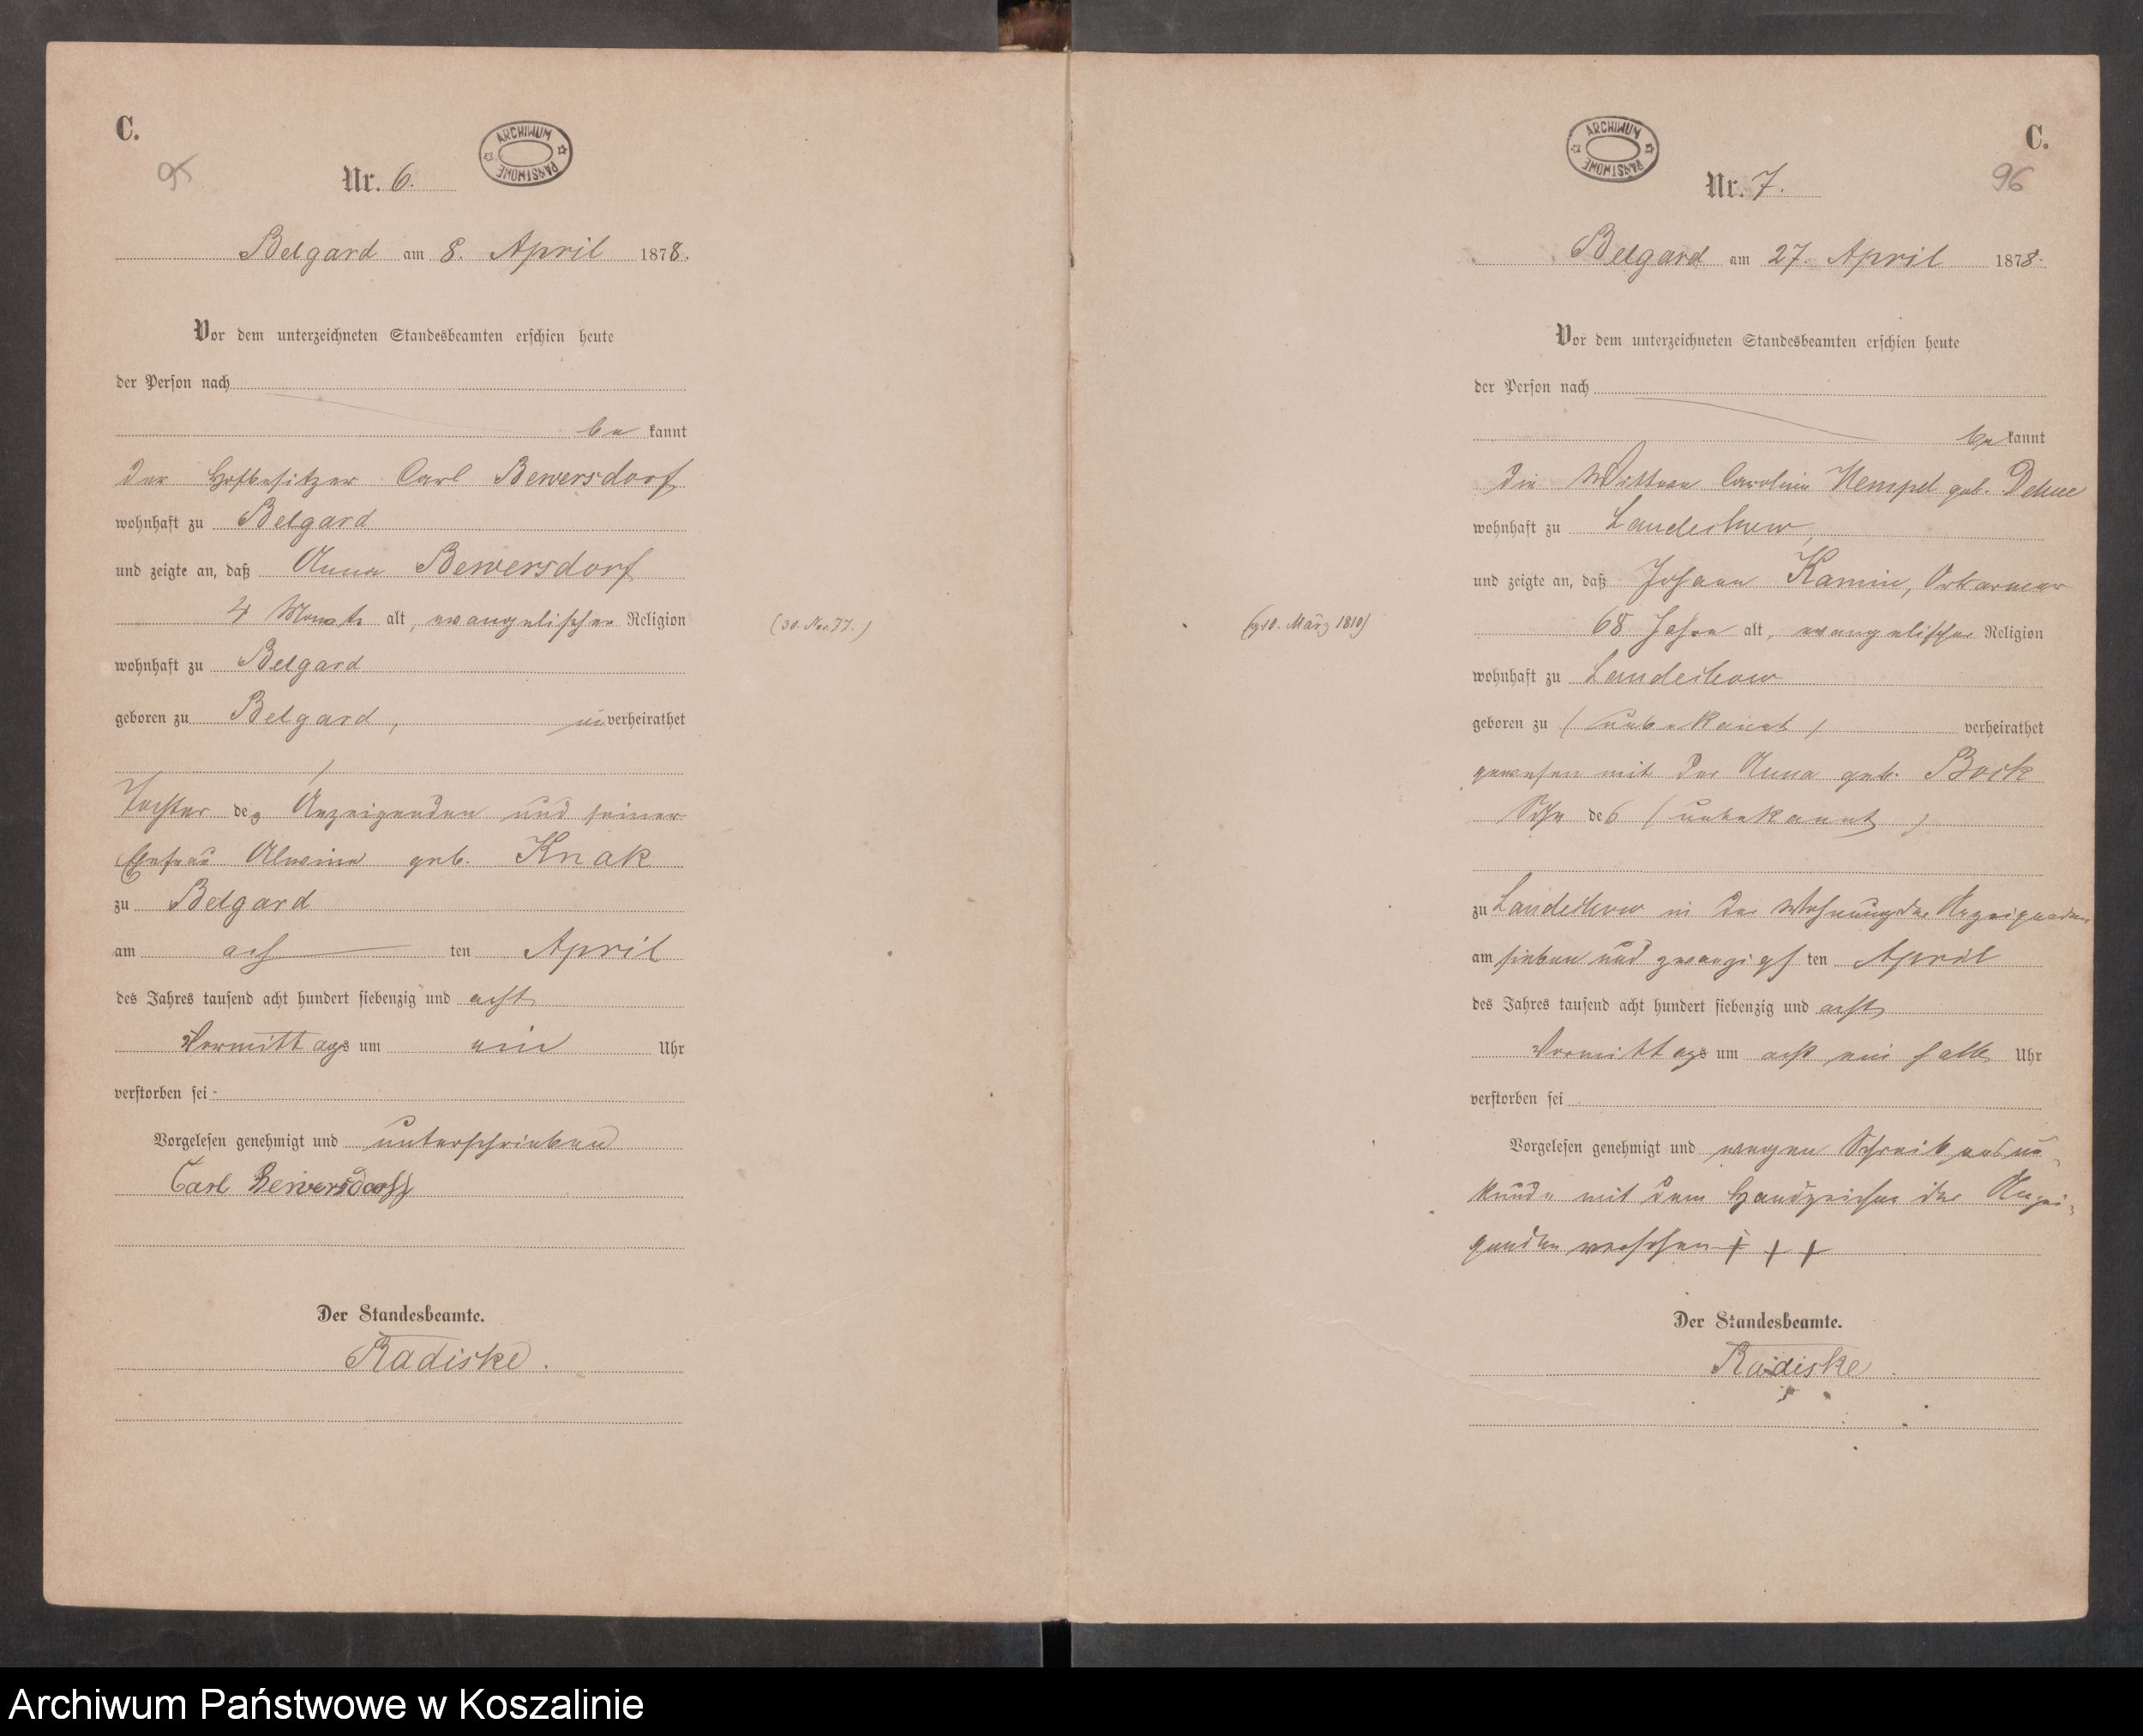 C.
95
Nr. 6.
ARCHIWUM PAŃSTWOWE
Belgard am 8. April 1878.
Vor dem unterzeichneten Standesbeamten erschien heute
der Person nach
be kannt
der Hofbesitzer Carl Bewersdorf
wohnhaft zu Belgard
und zeigte an, daß Anna Bewersdorf
4 Monate alt, evangelischer Religion
(30. Nov. 77.)
wohnhaft zu Belgard
geboren zu Belgard, unverheirathet
Tochter des Anzeigenden und seiner
Ehefrau Alwine geb. Knak
zu Belgard
am ach ten April
des Jahres tausend acht hundert siebenzig und acht
Vormittags um ein Uhr
verstorben sei -
Vorgelesen genehmigt und unterschrieben
Carl Bewersdorff
Der Standesbeamte.
Radiske.
C.
96
ARCHIWUM PAŃSTWOWE
Nr. 7.
Belgard am 27. April 1878.
Vor dem unterzeichneten Standesbeamten erschien heute
der Person nach
be kannt
die Wittwe Caroline Hempel geb.
wohnhaft zu Landechow,
und zeigte an, daß Johann Kamin, Ortsarmer
68 Jahre alt, evangelischer Religion
10. März 1810)
wohnhaft zu Landechow
geboren zu (unbekannt) verheirathet
gewesen mit der Anna geb. Bock
Sohn des (unbekannt)
zu Landechow in der Wohnung der Anzeigenden
am sieben und zwanzigs ten April
des Jahres tausend acht hundert siebenzig und acht
Vormittags um acht ein halb Uhr
verstorben sei
Vorgelesen genehmigt und wegen Schreibensun-
kunde mit dem Handzeichen der Anzei-
genden versehen + + +
Der Standesbeamte.
Radiske.
Archiwum Państwowe w Koszalinie